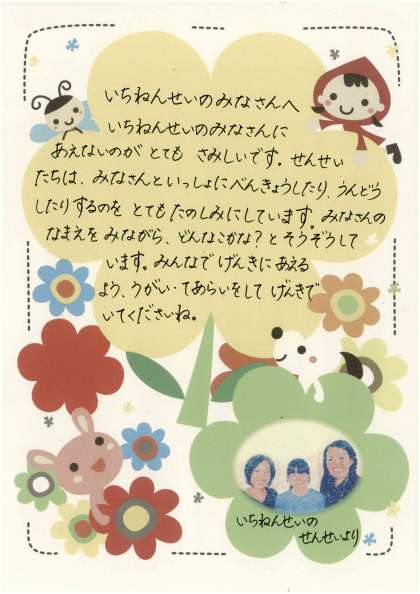 いちねんせいのみなさんへ
いちねんせいのみなさんに
あえないのが とても さみしいです。せんせい
たちは、みなさんといっしょにべんきょうしたり、うんどう
したりするのを とてもたのしみにしています。みなさんの
なまえをみながら、どんなこかな？とそうぞうして
います。みんなで げんきに あえる
よう、うがい・てあらいをして げんきで
いてくださいね。
いちねんせいの
せんせいより